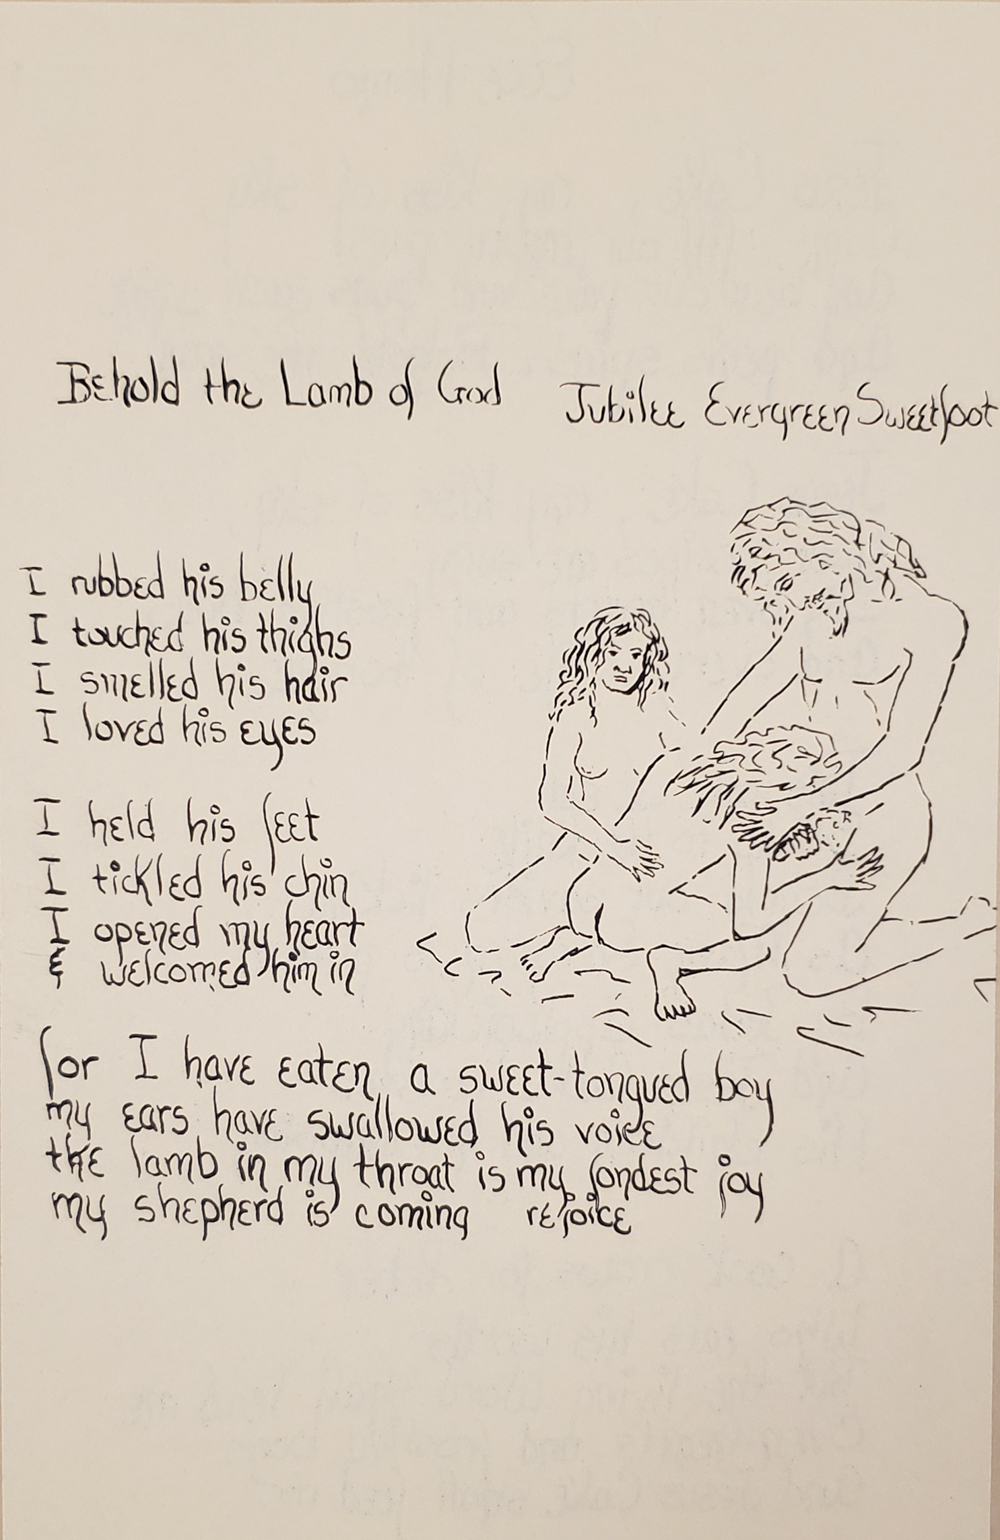 Behold the Lamb of God
Jubilee Evergreen Sweetfoot
I rubbed his belly
I touched his thighs
I smelled his hair
I loved his eyes
I held his feet
I tickled his chin
I opened my heart
& welcomed him in
for I have eaten a sweet-tongued boy
my ears have swallowed his voice
the lamb in my throat is my fondest joy
my shepherd is coming rejoice